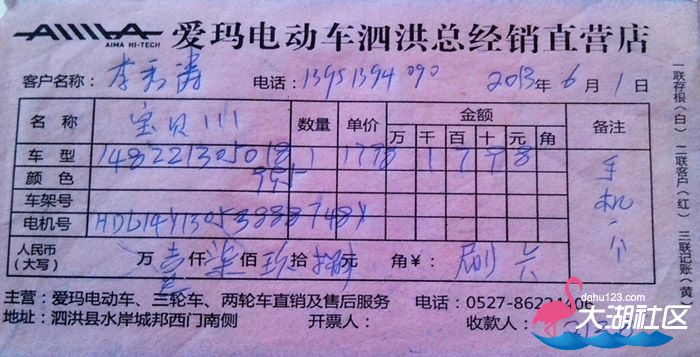 AIMA 爱玛电动车泗洪总经销直营店
AIMA HI-TECH
客户名称：李秀涛 电话：13951394090 2013年6月1日
名称 宝贝111 数量 单价 金额 备注
万 千 百 十 元 角
车型 148221305018 1 1798 1 7 9 8 手机一个
颜色
车架号
电机号
人民币(大写) 万 壹仟 柒佰 玖拾 捌元 角 ¥： 刷卡
主营：爱玛电动车、三轮车、两轮车直销及售后服务 电话：0527-8622
地址：泗洪县水岸城邦西门南侧 开票人： 收款人：
一联存根（白） 二联客户（红） 三联记账（黄
dahu123.com
大湖社区